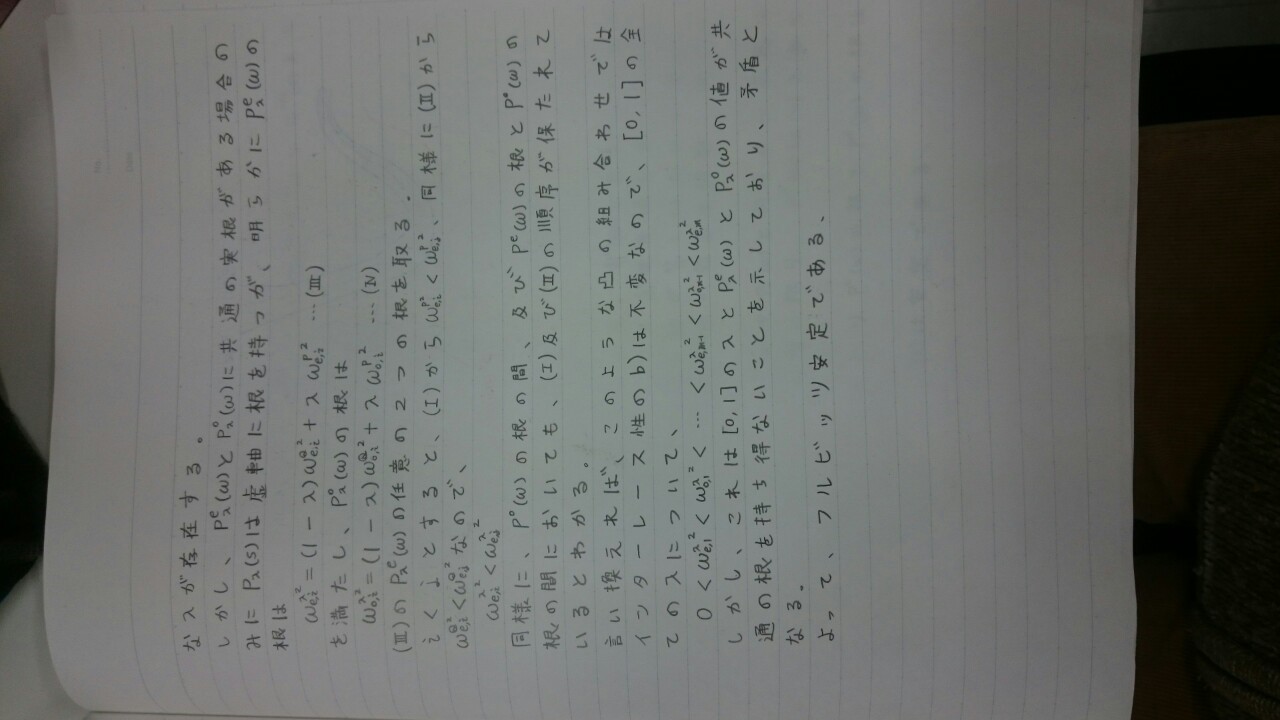 なλが存在する。
しかし、P^e_λ(ω)とP^o_λ(ω)に共通の実根がある場合の
みにP_λ(s)は虚軸に根を持つが、明らかにP^e_λ(ω)の
根は
ω^λ_{e,i}^2 = (1 - λ)ω^Q_{e,i}^2 + λ ω^P_{e,i}^2 …(III)
を満たし、P^o_λ(ω)の根は
ω^λ_{o,i}^2 = (1 - λ)ω^Q_{o,i}^2 + λ ω^P_{o,i}^2 …(IV)
(III)のP_λ^e(ω)の任意の2つの根を取る.
i<jとすると、(I)からω^P_{e,i}^2<ω^P_{e,j}^2、同様に(II)から
ω^Q_{e,i}^2<ω^Q_{e,j}^2なので、
ω^λ_{e,i}^2<ω^λ_{e,j}^2
同様に、P^o(ω)の根の間、及びP^e(ω)の根とP^o(ω)の
根の間においても、(I)及び(II)の順序が保たれて
いるとわかる。
言い換えれば、このような凸の組み合わせでは
インターレース性のb)は不変なので、[0,1]の全
てのλについて、
0 < ω^λ_{e,1}^2 < ω^λ_{o,1}^2 < … < ω^λ_{e,m-1}^2 < ω^λ_{o,m-1}^2 < ω^λ_{e,m}^2
しかし、これは[0,1]のλとP^e_λ(ω)とP^o_λ(ω)の値が共
通の根を持ち得ないことを示しており、矛盾と
なる。
よって、フルビッツ安定である.